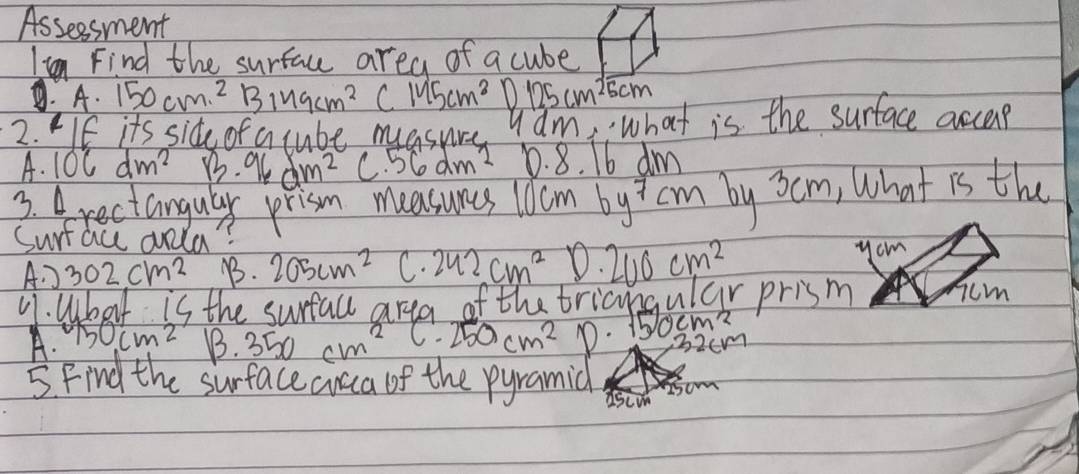 Assessment
1. Find the surface area of a cube
A. 150 cm.² B 149cm² C 145cm² D 125 cm² 5cm
2. If its side of a cube measure 4 dm, what is the surface
A. 106 dm² B. 96 dm² C. 56 dm² D. 8.16 dm
3. A rectangular prism measures 10cm by 7 cm by 3cm, What is the
Surface area?
A.) 302 cm² B. 205cm² C. 242 cm² D. 200 cm²
4cm
4). What is the surface area of the triangular prism
7cm
A. 450 cm² B. 350 cm² C. 250 cm² D. 150cm²
32cm
5. Find the surface area of the pyramid
25cm 25cm